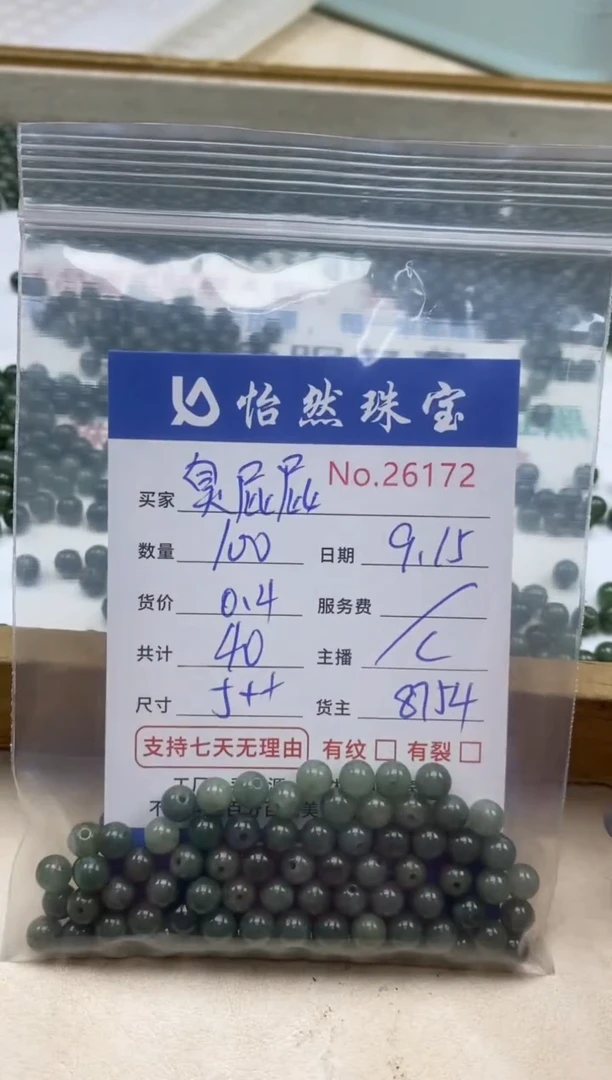 怡然珠宝
No.26172
买家 臭屁屁
数量 100 日期 9.15
货价 0.4 服务费 /
共计 40 主播 /C
尺寸 5++ 货主 8754
支持七天无理由 有纹 □ 有裂 □
工厂
不 百分百 美